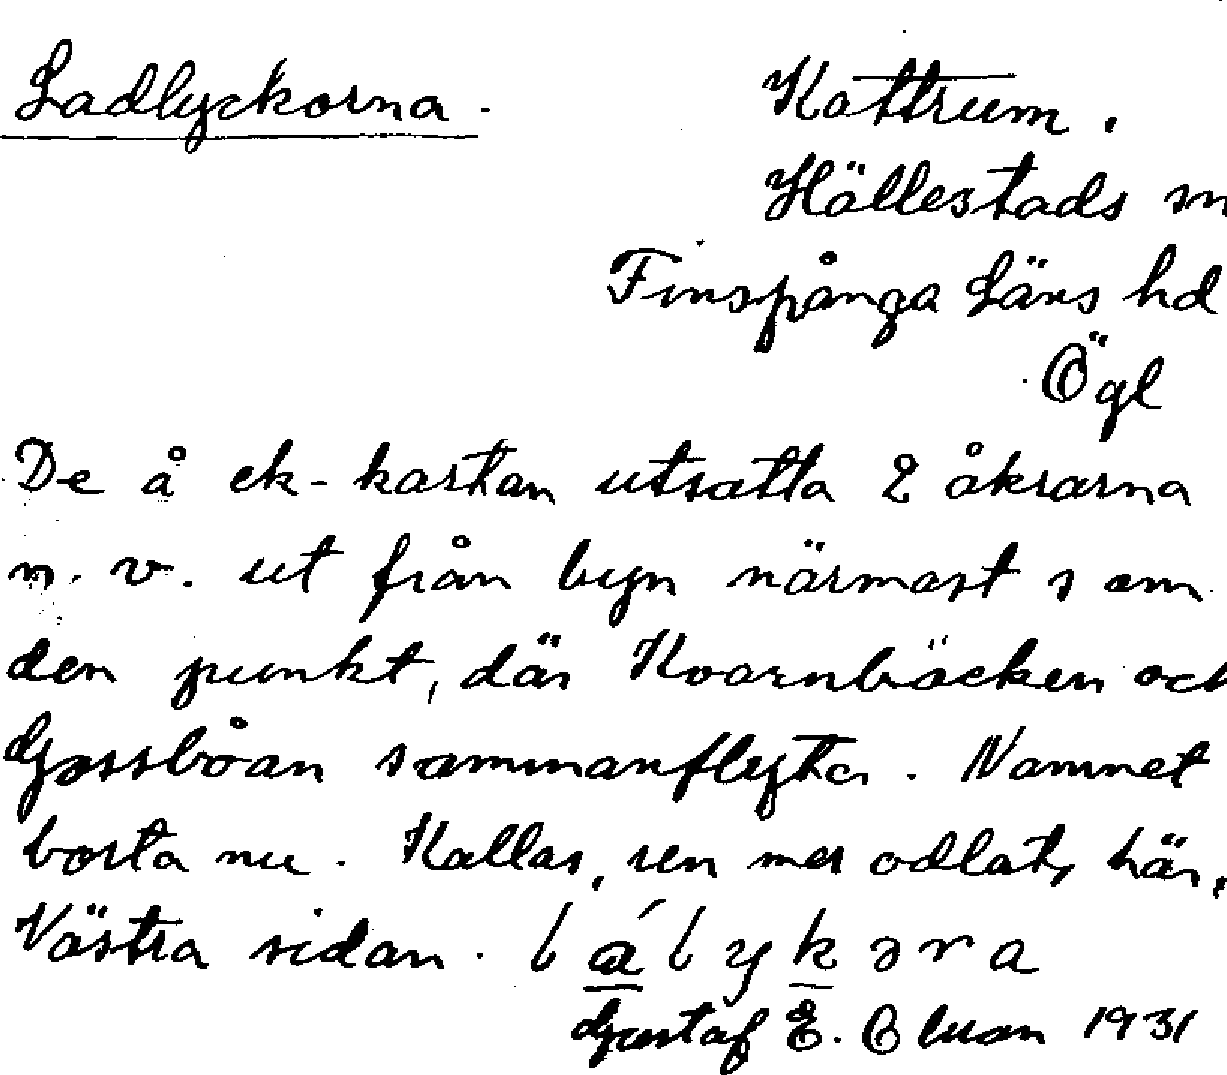 Ladlyckorna.
Kattrum.
Hällestads sn
Finspånga Läns hd
Ögl
De å ek-kartan utsatta 2 åkrarna
n.v. ut från byn närmast s om
den punkt, där Kvarnbäcken och
Gossbåan sammanflyta. Namnet
borta nu. Kallas, sen mer odlats här,
Västra sidan. lálykɔra
Gustaf E.
1931